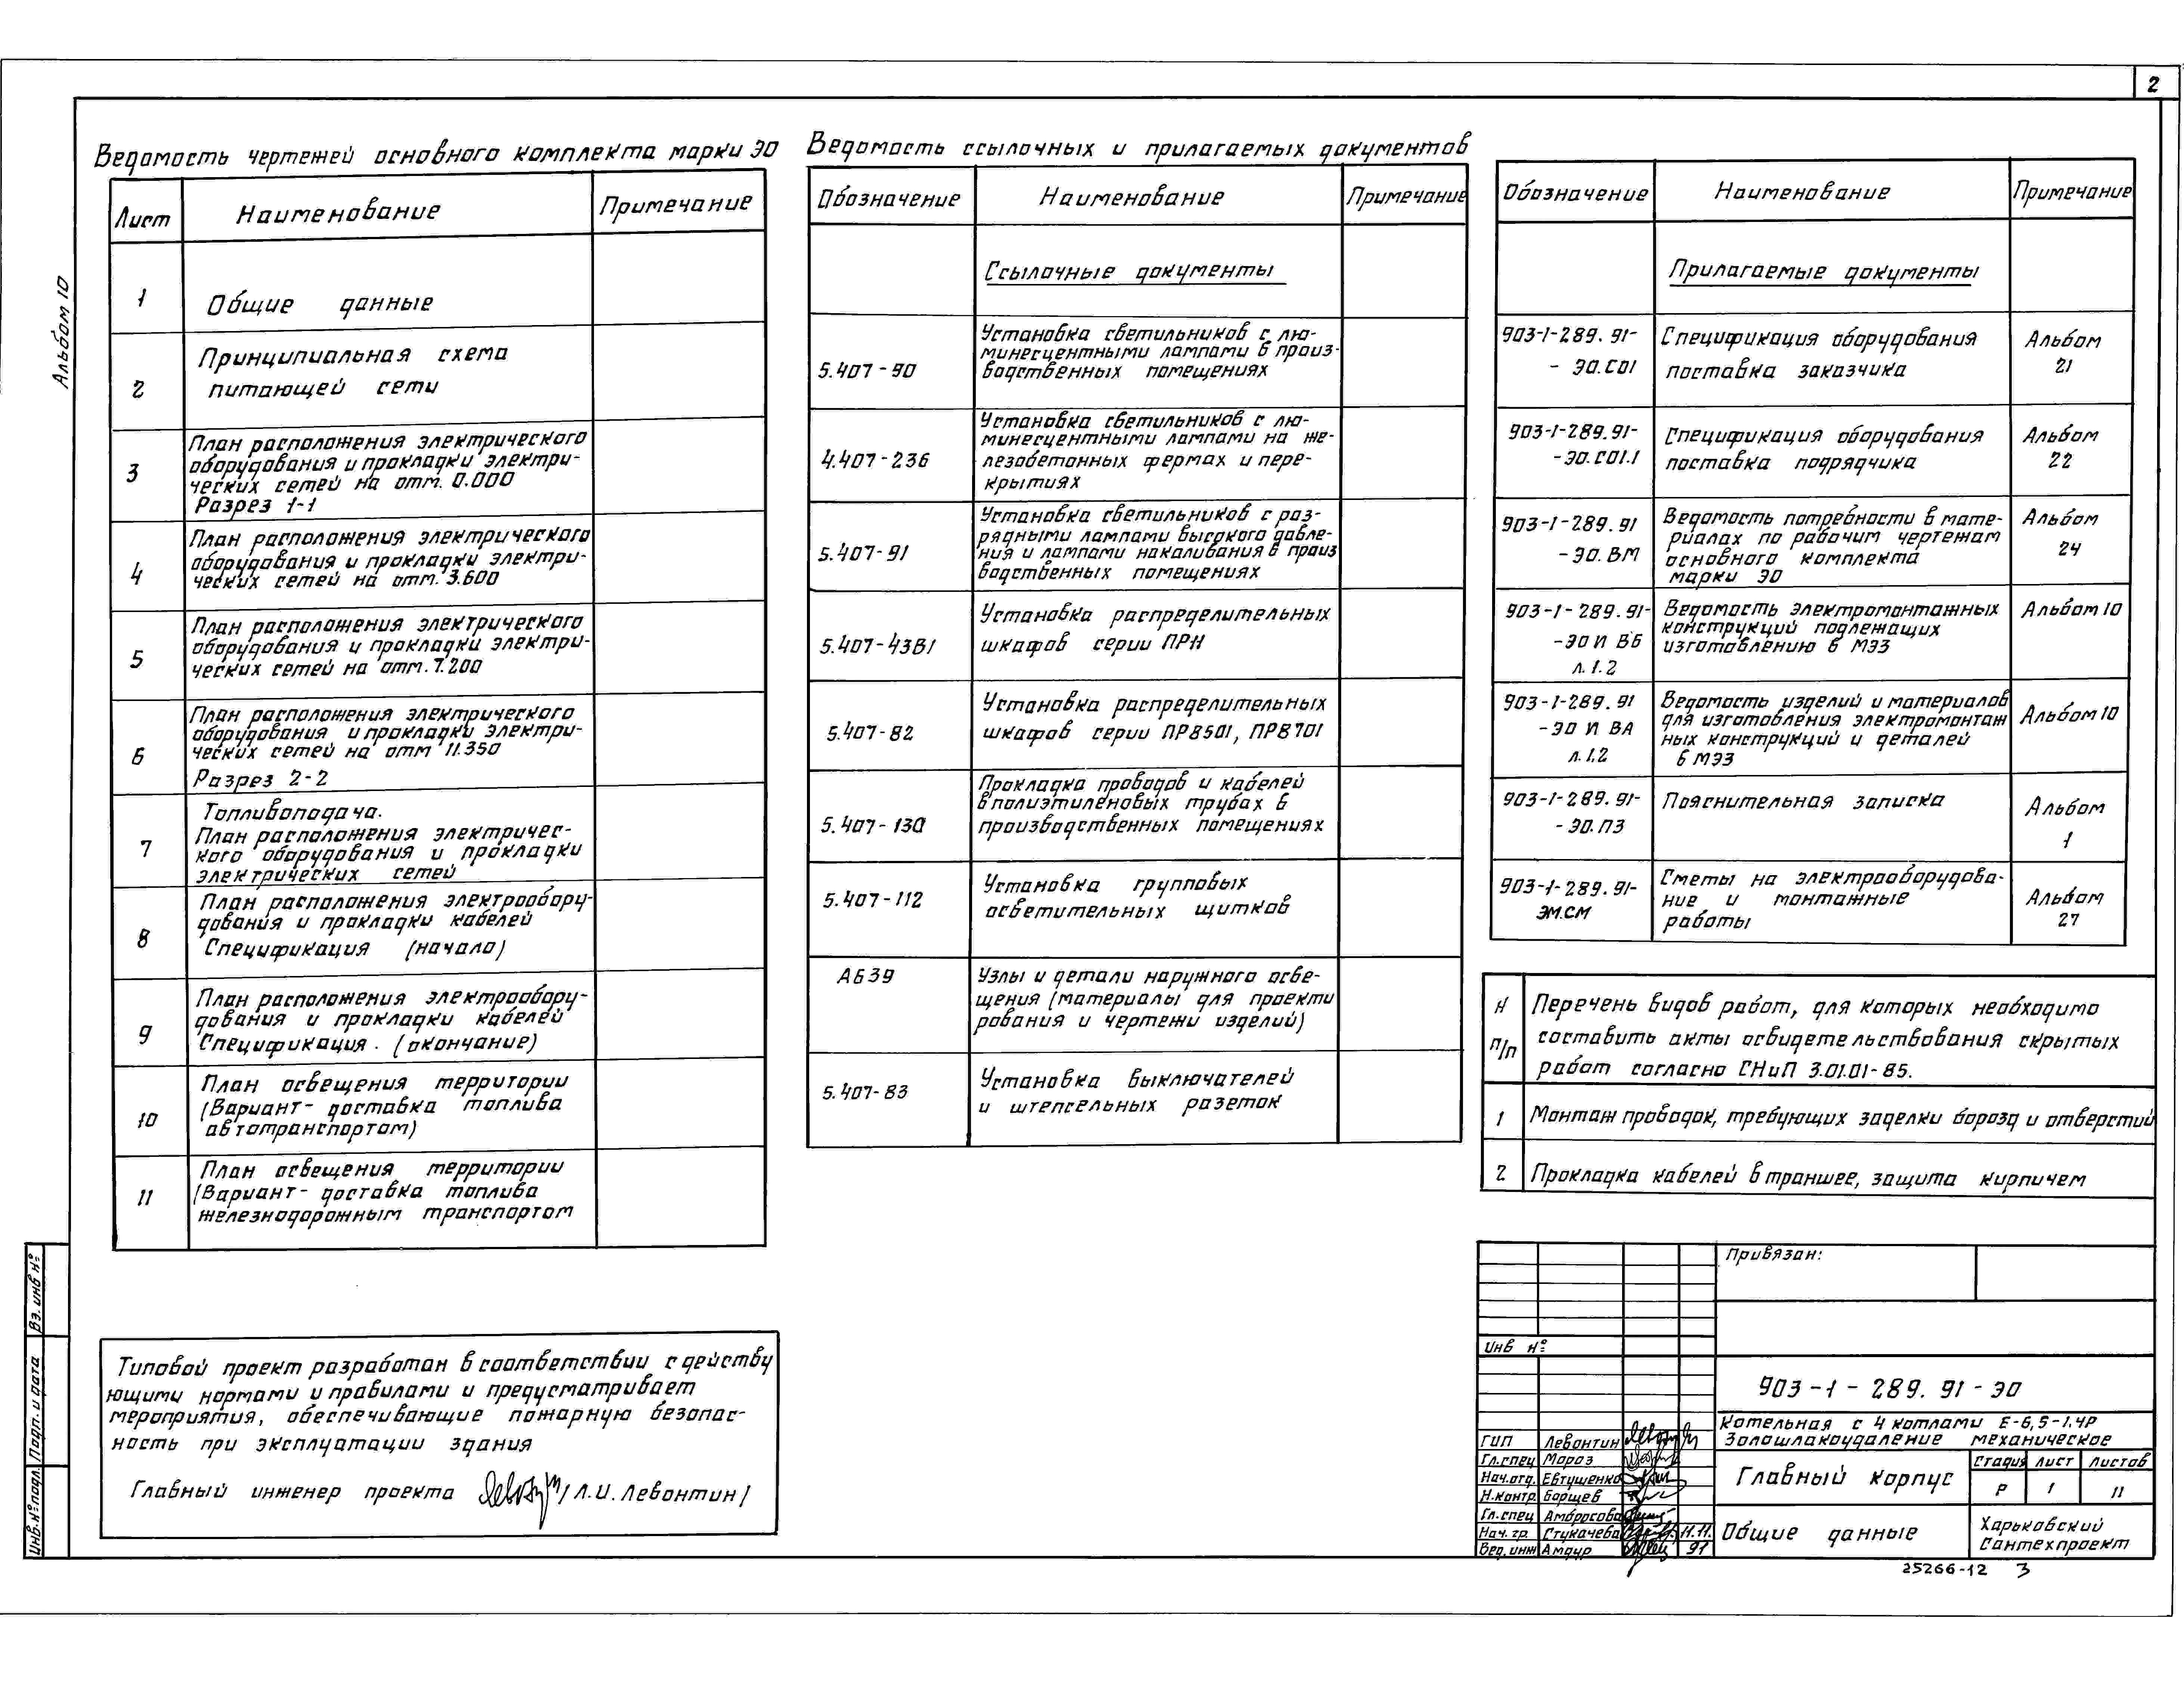 2
Альбом 10
Ведомость чертежей основного комплекта марки ЭО
Лист Наименование Примечание
1 Общие данные
2 Принципиальная схема
питающей сети
3 План расположения электрического
оборудования и прокладки электри-
ческих сетей на отм. 0.000
Разрез 1-1
4 План расположения электрического
оборудования и прокладки электри-
ческих сетей на отм. 3.600
5 План расположения электрического
оборудования и прокладки электри-
ческих сетей на отм. 7.200
6 План расположения электрического
оборудования и прокладки электри-
ческих сетей на отм 11.350
Разрез 2-2
7 Топливоподача.
План расположения электричес-
кого оборудования и прокладки
электрических сетей
8 План расположения электрообору-
дования и прокладки кабелей
Спецификация (начало)
9 План расположения электрообору-
дования и прокладки кабелей
Спецификация. (окончание)
10 План освещения территории
(Вариант- доставка топлива
автотранспортом)
11 План освещения территории
(Вариант- доставка топлива
железнодорожным транспортом
Типовой проект разработан в соответствии с действу
ющими нормами и правилами и предусматривает
мероприятия, обеспечивающие пожарную безопас-
ность при эксплуатации здания
Главный инженер проекта /Л.И. Левонтин/
Ведомость ссылочных и прилагаемых документов
Обозначение Наименование Примечание
Ссылочные документы
5.407-90 Установка светильников с лю-
минесцентными лампами в произ-
водственных помещениях
4.407-236 Установка светильников с лю-
минесцентными лампами на же-
лезобетонных фермах и пере-
крытиях
5.407-91 Установка светильников с раз-
рядными лампами высокого давле-
ния и лампами накаливания в произ
водственных помещениях
5.407-43В1 Установка распределительных
шкафов серии ПРН
5.407-82 Установка распределительных
шкафов серии ПР8501, ПР8701
5.407-130 Прокладка проводов и кабелей
в полиэтиленовых трубах в
производственных помещениях
5.407-112 Установка групповых
осветительных щитков
А639 Узлы и детали наружного осве-
щения (материалы для проекти
рования и чертежи изделий)
5.407-83 Установка выключателей
и штепсельных розеток
Обозначение Наименование Примечание
Прилагаемые документы
903-1-289.91- Спецификация оборудования Альбом
- ЭО.СО1 поставка заказчика 21
903-1-289.91- Спецификация оборудования Альбом
-ЭО.СО1.1 поставка подрядчика 22
903-1-289.91 Ведомость потребности в мате- Альбом
-ЭО.ВМ риалах по рабочим чертежам 24
основного комплекта
марки ЭО
903-1-289.91- Ведомость электромонтажных Альбом 10
-ЭО И ВБ конструкций подлежащих
л.1.2 изготовлению в МЭЗ
903-1-289.91 Ведомость изделий и материалов Альбом 10
-ЭО И ВА для изготовления электромонтаж
л.1,2 ных конструкций и деталей
в МЭЗ
903-1-289.91- Пояснительная записка Альбом
-ЭО.ПЗ 1
903-1-289.91- Сметы на электрооборудова- Альбом
ЭМ.СМ ние и монтажные 27
работы
N Перечень видов работ, для которых необходимо
п/п составить акты освидетельствования скрытых
работ согласно СНиП 3.01.01-85.
1 Монтаж проводок, требующих заделки борозд и отверстий
2 Прокладка кабелей в траншее, защита кирпичем
Привязан:
Инв №
903-1-289.91-ЭО
Котельная с 4 котлами Е-6,5-1.4Р
Золошлакоудаление механическое
ГИП Левонтин
Гл.спец Мороз
Нач.отд. Евтушенко
Н.контр. Борщев
Гл.спец Амбросова
Нач. гр. Стукачева 11.11.
Вед.инж Амдур 91
Главный корпус
Стадия Лист Листов
Р 1 11
Общие данные
Харьковский
Сантехпроект
25266-12 3
Вз. инв №
Подп. и дата
Инв.№ подл.